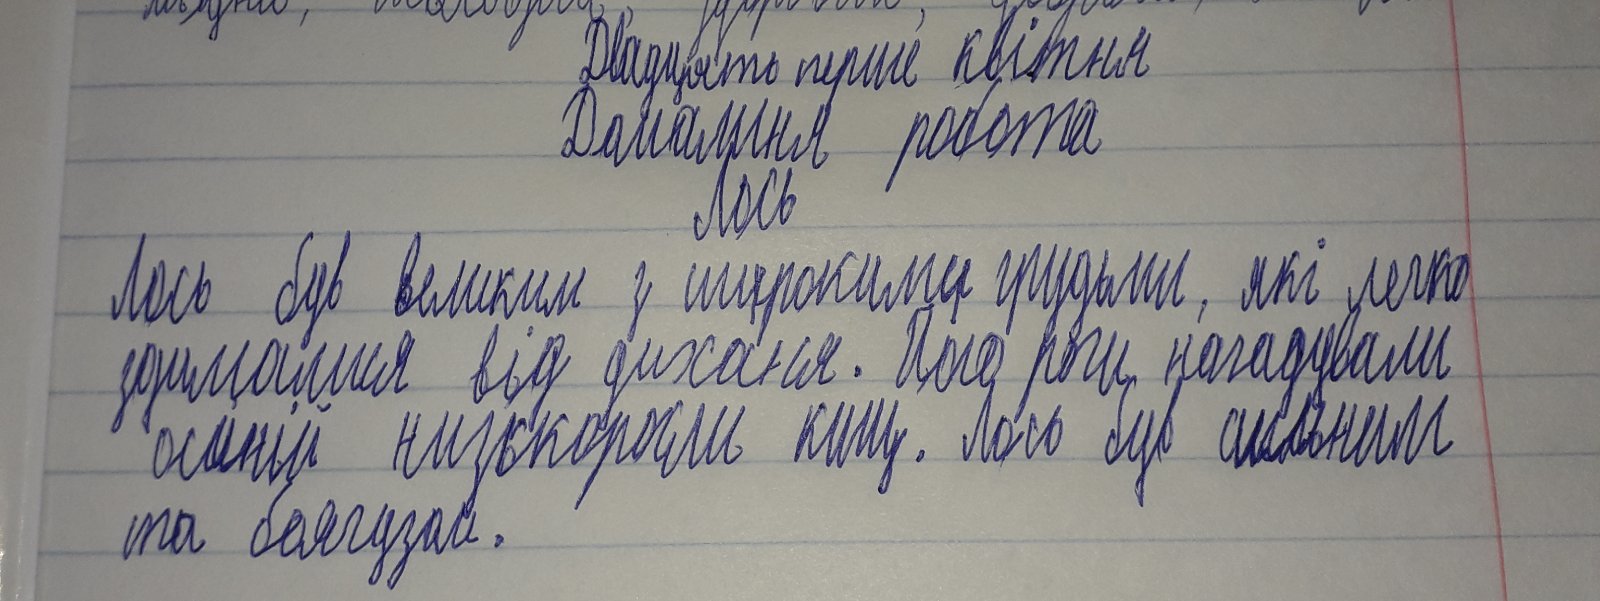 Двадцять перше квітня
Домашня робота
Лось
Лось був великим з широкими грудьми, які легко
здималися від дихання. Його роги нагадували
осінній низькорослі кущ. Лось був сильним
та боягузом.